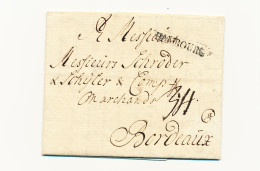 A Messieurs
HAMBOURG
Messieurs Schröder
& Schÿler & Comp
Marchands
34
Bordeaux